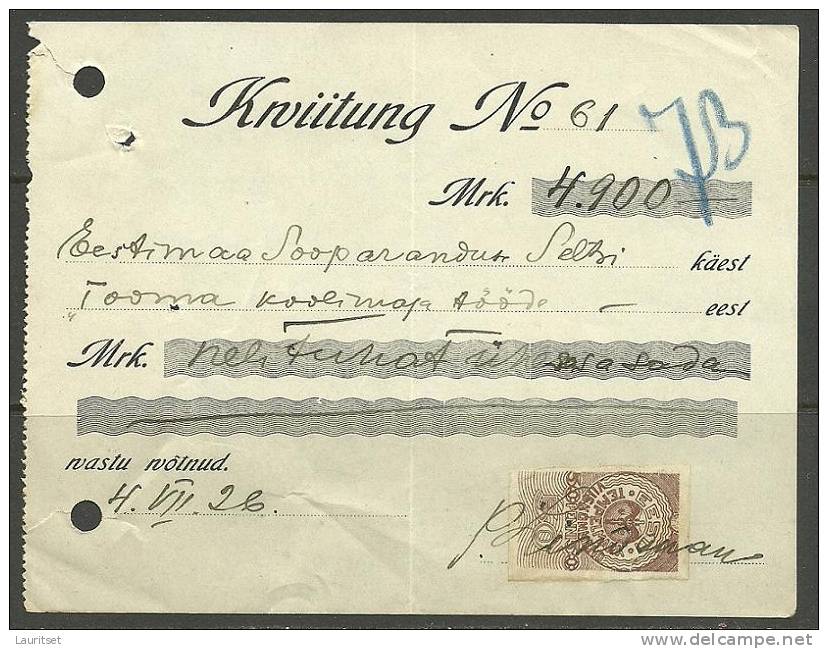 Kwiitung No 61
7B
Mrk. 4.900
Eestimaa Sooparanduse Seltsi käest
"Tooma koolimaja tööde — eest
Mrk. Neli tuhat üheksasada
wastu wõtnud.
4. VII. 26.
EESTI
TEMPELMARK
Lauritset
delcampe.net